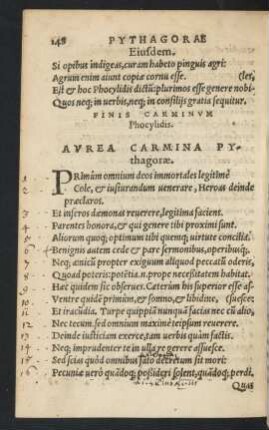 148 PYTHAGORAE
Eiusdem.
Si opibus indigeas, curam habeto pinguis agri:
Agrum enim aiunt copiæ cornu esse. (les,
Est & hoc Phocylidis dictũ: plurimos esse genere nobi-
Quos neq; in uerbis, neq; in consilijs gratia sequitur.
FINIS CARMINVM
Phocylidis.
AVREA CARMINA PY-
thagoræ.
1 PRimùm omnium deos immortales legitimè
2 Cole, & iusiurandum uenerare, Heroas deinde
præclaros.
3 Et inferos dæmonas reuerere, legitima faciens.
4 Parentes honora, & qui genere tibi proximi sunt.
5 Aliorum quoq; optimum tibi quemq; uirtute concilia.
6 Benignis autem cede & pare sermonibus, operibusq́;.
7 Neq; amicũ propter exiguum aliquod peccatũ oderis,
8 Quoad poteris: potētia.n. prope necessitatem habitat.
9 Hæc quidem sic obserues. Cæterùm his superior esse as-
10 Ventre quidē primùm, & somno, & libidine, (suesce:
11 Et iracũdia. Turpe quippiã nunquã facias nec cũ alio,
12 Nec tecum. sed omnium maximè teipsum reuerere.
13 Deinde iusticiam exerce, tam uerbis quàm factis.
14 Neq; imprudenter te in ulla re gerere assuesce.
15 Sed scias quòd omnibus fato decretum sit mori:
16 Pecuniæ uerò quãdoq; possideri solent, quãdoq; perdi.
Quas